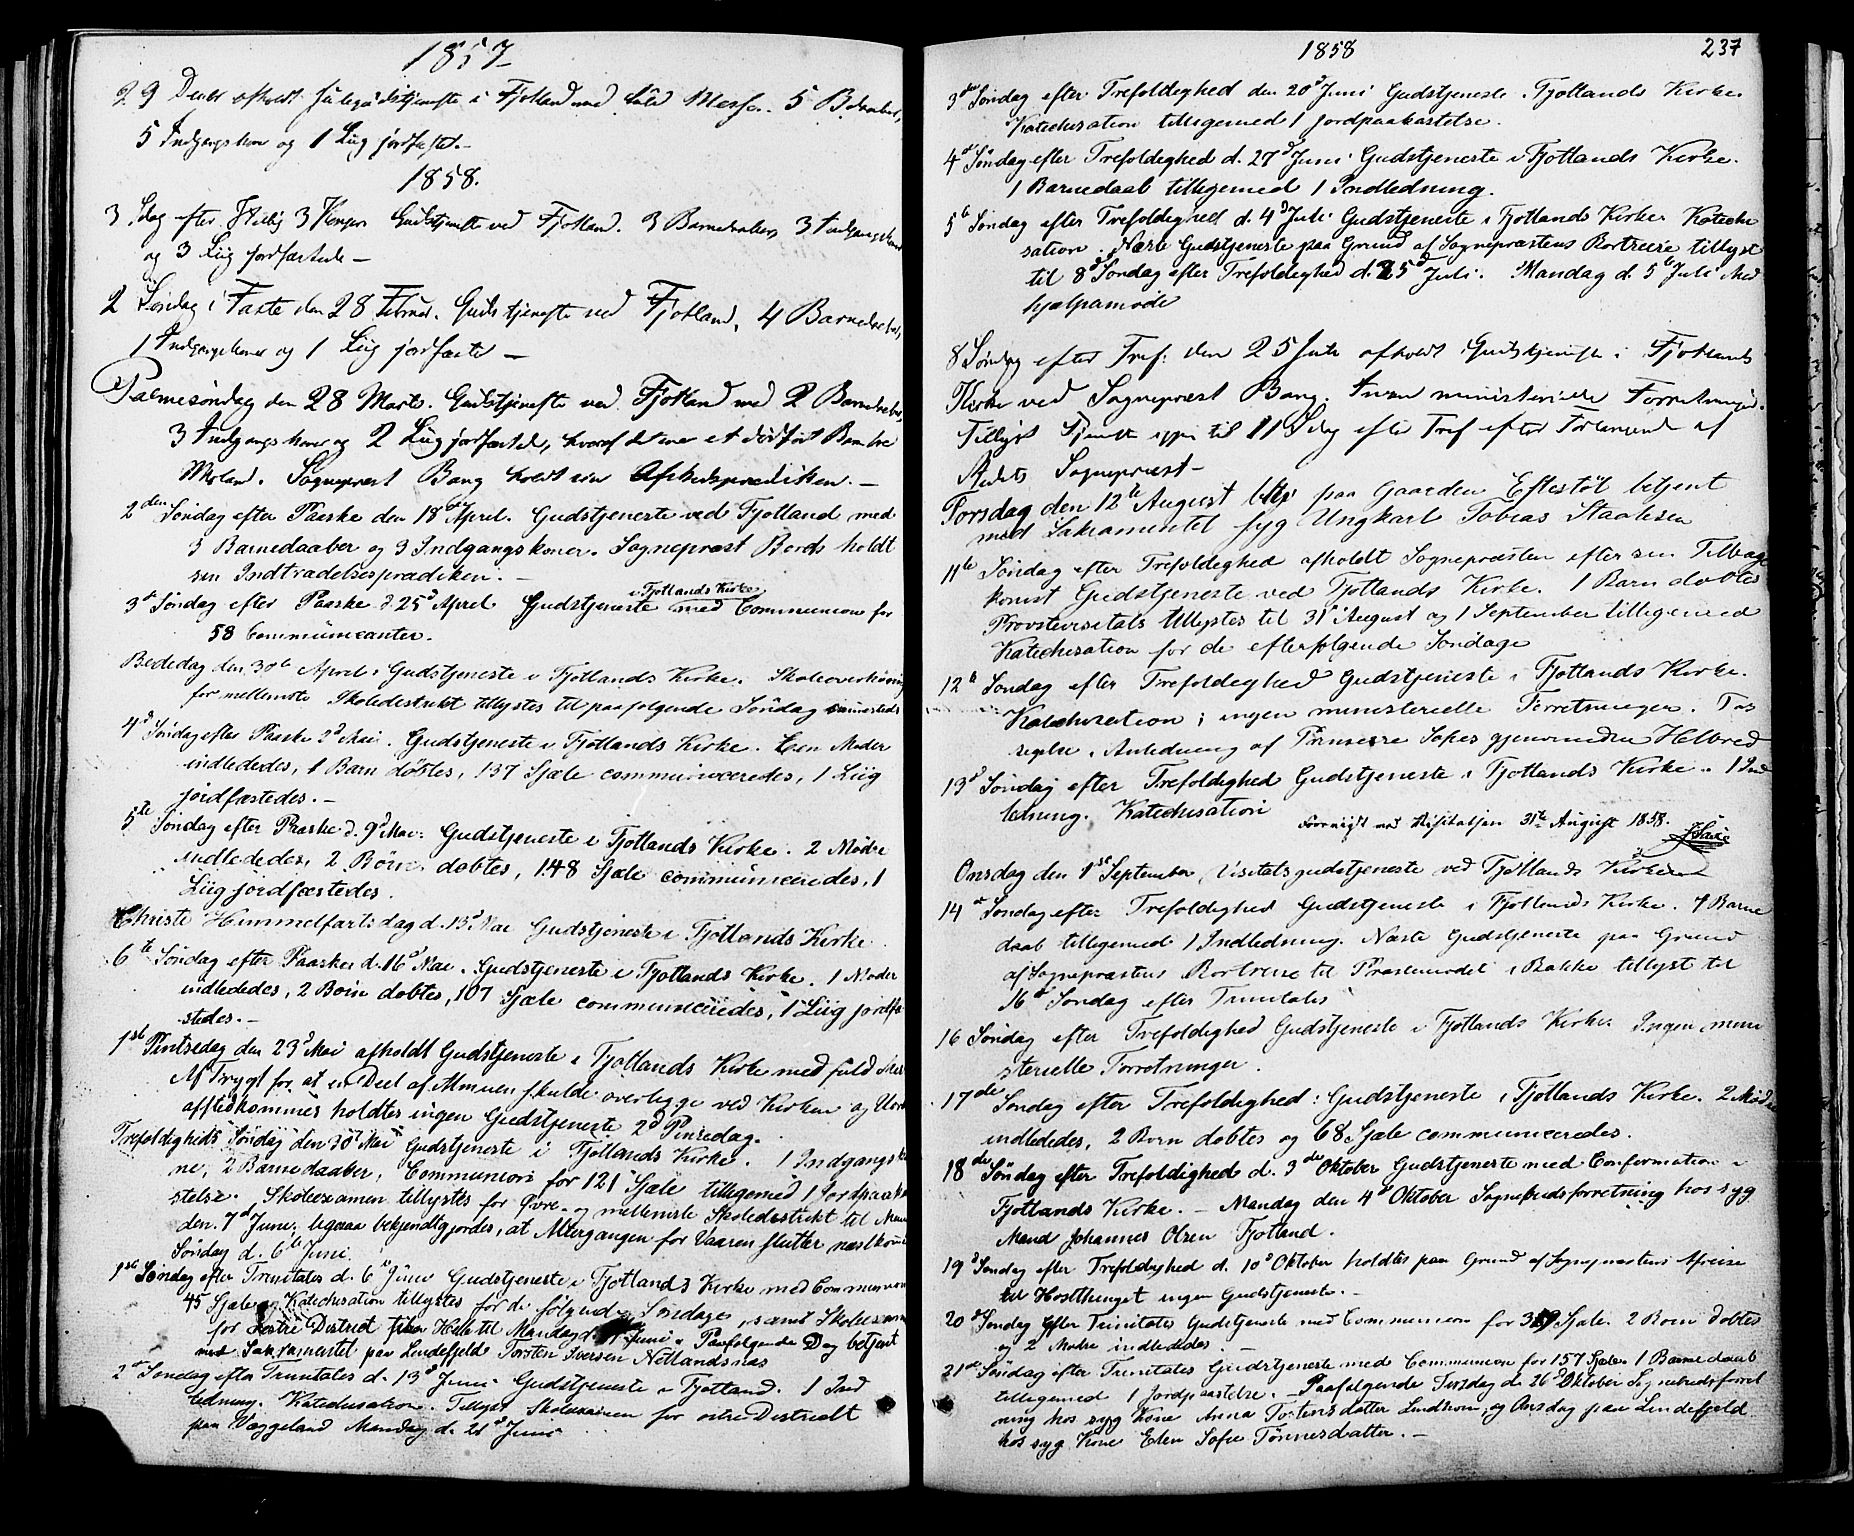 1857
29 Decbr afholdt Julegudstjeneste i Fjotland med fuld Messe. 5 Bdaaber,
5 Indgangskoner og 1 Liig jordfæstet.
1858.
3 Sdag efter Hellig 3 Konger Gudstjeneste ved Fjotland. 3 Barnedaaber, 3 Indgangskoner
og 3 Liig jordfæstede
2 Søndag i Faste den 28 Februar. Gudstjeneste ved Fjotland, 4 Barnedaaber,
1 Indgangskone og 1 Liig jordfæstet
Palmesøndag den 28 Marts. Gudstjeneste ved Fjotland med 2 Barnedaaber,
3 Indgangskoner og 2 Liig jordfæstede, hvoraf det ene et dødfødt Barn fra
Moland. Sognepræst Bang holdt sin Afskedsprædiken.
2den Søndag efter Paaske den 18de April. Gudstjeneste ved Fjotland med
3 Barnedaaber og 3 Indgangskoner. Sognepræst Bords holdt
sin Indtrædelsesprædiken.
i Fjotlands Kirke
3d Søndag efter Paaske d. 25d April Gudstjeneste med Communion for
58 Communicanter.
Bededag den 30te April Gudstjeneste i Fjotlands Kirke. Skoleoverhøring
for mellemste Skoledistrikt tillystes til paafølgende Søndag sammesteds
4d Søndag efter Paaske 2d Mai. Gudstjeneste i Fjotlands Kirke. Een Moder
indlededes, 1 Barn døbtes, 137 Sjæle communiceredes, 1 Liig
jordfæstedes.
5te Søndag efter Paaske d. 9d Mai: Gudstjeneste i Fjotlands Kirke. 2 Mødre
indlededes, 2 Børn døbtes, 148 Sjæle communiceredes, 1
Liig jordfæstedes.
Christi Himmelfartsdag d. 13d Mai Gudstjeneste i Fjotlands Kirke
6te Søndag efter Paaske d. 16d Mai. Gudstjeneste i Fjotlands Kirke. 1 Moder
indlededes, 2 Børn døbtes, 107 Sjæle communiceredes, 1 Liig jordfæ
stedes.
1ste Pintsedag den 23d Mai afholdt Gudstjeneste i Fjotlands Kirke med fuld Messe
Af Frygt for, at en Deel af Almuen skulde overligge ved Kirken og
afstedkommes holdtes ingen Gudstjeneste 2d Pinsedag.
Trefoldigheds Søndag den 30d Mai Gudstjeneste i Fjotlands Kirke. 1 Indgangsko
ne, 2 Barnedaaber, Communion for 121 Sjæle tilligemed 1 Jordpaaka
stelse. Skoleexamen tillystes for øvre- og mellemste Skoledistrikt til Man
den 7d Juni, ligesaa bekjendtgjordes, at Altergangen for Vaaren slutter næstkom
Søndag d. 6te Juni
1ste Søndag efter Trinitatis d. 6te Juni Gudstjeneste i Fjotlands Kirke med Communion
45 Sjæle. Katechisation tillystes for de følgende Søndage, samt Skoleexamen
for District til Mandag Juni. Paafølgende Dag betjent
med Sakramentet paa Lindefjeld Torsten Iversen Netlandsnæs
2d Søndag efter Trinitatis d. 13d Juni Gudstjeneste i Fjotland. 1 Ind
ledning. Katechisation. Tillyst Skoleexamen for District
paa Væggeland Mandag d. 21d Juni
1858
237
3die Søndag efter Trefoldighed den 20d Juni Gudstjeneste i Fjotlands Kirke.
Katechisation tilligemed 1 Jordpaakastelse.
4d Søndag efter Trefoldighed d. 27d Juni Gudstjeneste i Fjotlands Kirke.
1 Barnedaab tilligemed 1 Indledning.
5te Søndag efter Trefoldighed d. 4d Juli Gudstjeneste i Fjotlands Kirke. Kateche
sation. Næste Gudstjeneste paa Grund af Sognepræstens Bortreise tillyst
til 8d Søndag efter Trefoldighed d. 25d Juli. Mandag d. 5te Juli Med
hjælpamøde
8 Søndag efter Tref: den 25 Juli afholdt Gudstjeneste i Fjotlands
Kirke ved Sognepræst Bang. Ingen ministerielle Forretninger.
Tillyst Tjeneste igjen til 11 Sdag efter Tref efter Forlangende af
Stedets Sognepræst
Torsdag den 12te August blev paa Gaarden Eftestøl betjent
med Sakramentet syg Ungkarl Tobias Staalesen
11te Søndag efter Trefoldighed afholdt Sognepræsten efter sin Tilbage
komst Gudstjeneste ved Fjotlands Kirke. 1 Barn døbtes
Provstevisitats tillystes til 31te August og 1 September tilligemed
Katechisation for de efterfølgende Søndage
12te Søndag efter Trefoldighed Gudstjeneste i Fjotlands Kirke.
Katechisation; ingen ministerielle Forretninger. Tak
sigelse i Anledning af Prinsesse Sofies gjenvundne Helbred
13d Søndag efter Trefoldighed Gudstjeneste i Fjotlands Kirke. 1 Ind
ledning. Katechisation
Foreviist ved Visitatsen 31te August 1858.
Onsdag den 1ste September Visitatsgudstjeneste ved Fjotlands Kirke
14d Søndag efter Trefoldighed Gudstjeneste i Fjotlands Kirke. 1 Barne
daab tilligemed 1 Indledning. Næste Gudstjeneste paa Grund
af Sognepræstens Bortreise til Præstemødet i Bakke tillyst til
16d Søndag efter Trinitatis
16 Søndag efter Trefoldighed Gudstjeneste i Fjotlands Kirke. Ingen mini
sterielle Forretninger.
17de Søndag efter Trefoldighed: Gudstjeneste i Fjotlands Kirke. 2 Mødre
indlededes, 2 Børn døbtes og 68 Sjæle communiceredes.
18de Søndag efter Trefoldighed d. 3die Oktober Gudstjeneste med Confirmation i
Fjotlands Kirke. – Mandag den 4d Oktober Sognebudsforretning hos syg
Mand Johannes Olsen Fjotland.
19d Søndag efter Trefoldighed d. 10d Oktober holdtes paa Grund af Sognepræstens Afreise
til Høstthinget ingen Gudstjeneste.
20d Søndag efter Trinitatis Gudstjeneste med Communion for Sjæle. 2 Børn døbtes
og 2 Mødre indlededes.
21de Søndag efter Trinitatis Gudstjeneste med Communion for 157 Sjæle. 1 Barnedaab
tilligemed 1 Jordpaastelse. Paafølgende Tirsdag d. 26d Oktober Sognebudsforret
ning hos syg Kone Anna Tostensdatter Lindhom, og Onsdag paa Lindefjeld
hos syg Kone Elen Sofie Tønnesdatter.